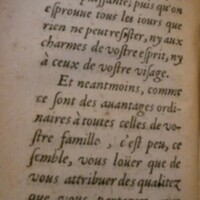 puissante, puis qu'on
esprouue tous les iours que
rien ne peut resister, ny aux
charmes de vostre esprit, ny
à ceux de vostre visage.
Et neantmoins, comme
ce sont des auantages ordi-
naires à toutes celles de vo-
stre famille, c'est peu, ce
semble, vous loüer que de
vous attribuer des qualitez
que vous